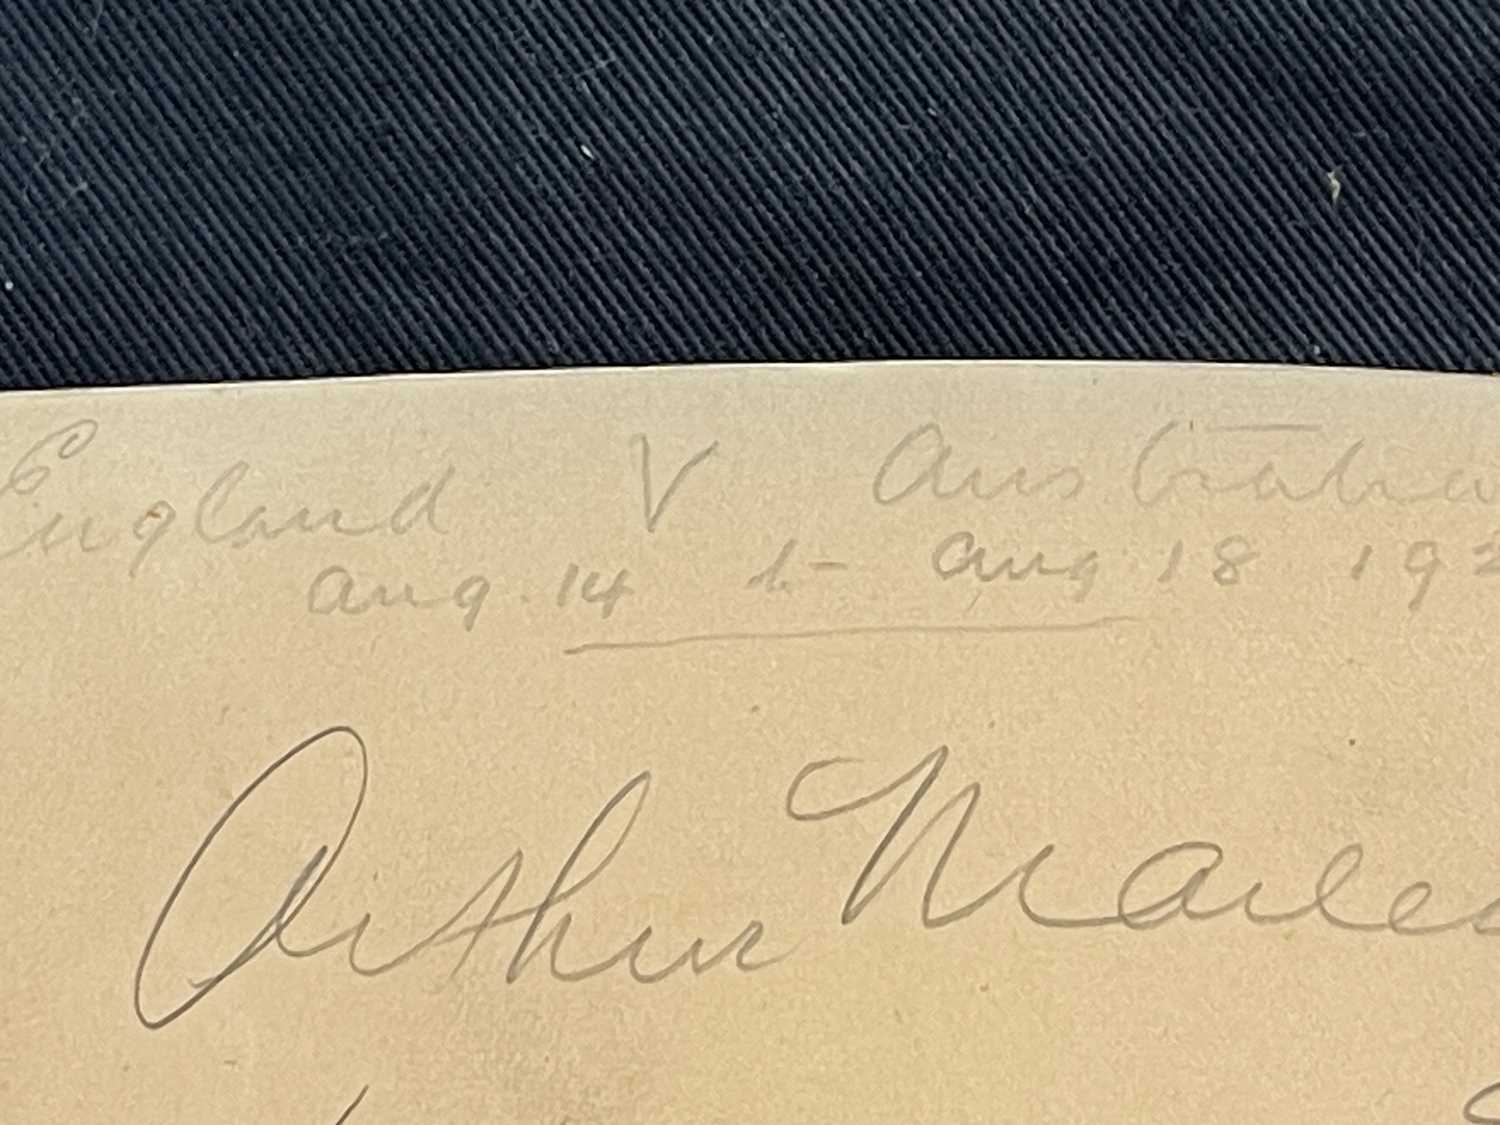 England V Australia
Aug. 14 to Aug 18 192
Arthur Mailey